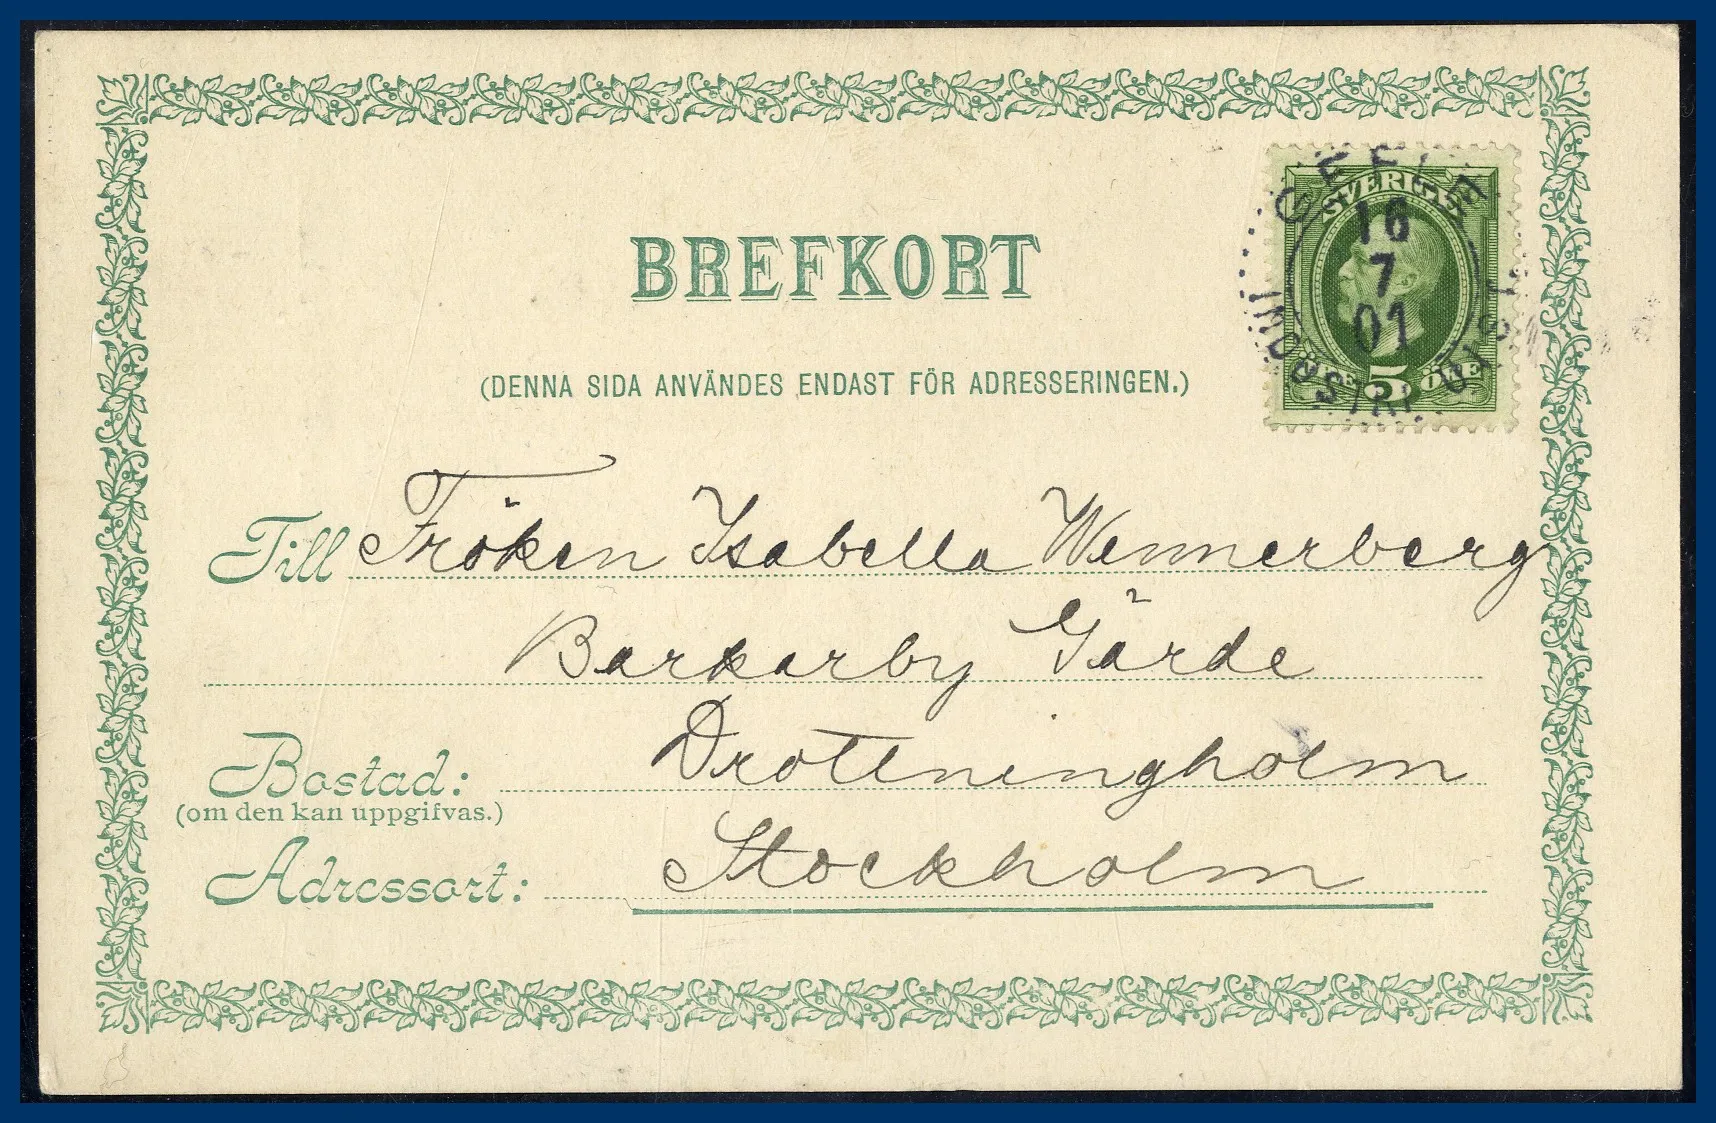 BREFKORT
(DENNA SIDA ANVÄNDES ENDAST FÖR ADRESSERINGEN.)
GEFLE
SVERIGE
16
7
01
INDUSTRIUTST.
5 ÖRE
Till Fröken Isabella Wennerberg
Barkarby Gärde
Bostad: Drottningholm
(om den kan uppgifvas.)
Adressort: Stockholm